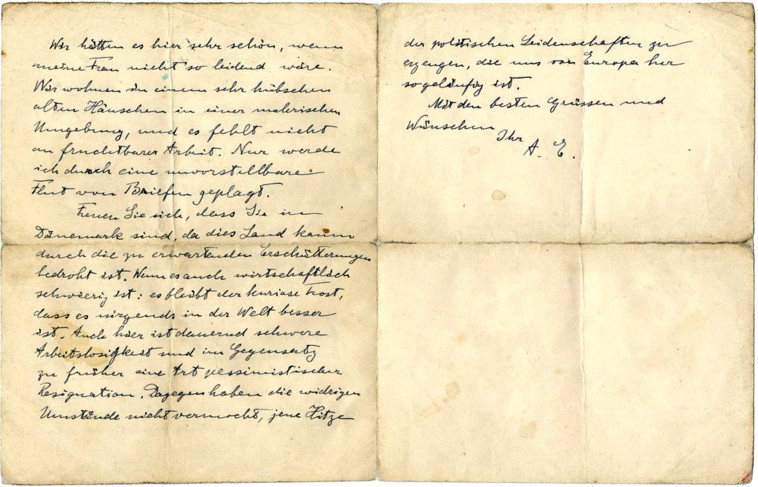 Wir hätten es hier sehr schön, wenn
meine Frau nicht so leidend wäre.
Wir wohnen in einem sehr hübschen
alten Häuschen in einer malerischen
Umgebung, und es fehlt nicht
an fruchtbarer Arbeit. Nur werde
ich durch eine unvorstellbare
Flut von Briefen geplagt.
Freuen Sie sich, dass Sie in
Dänemark sind, da dies Land kaum
durch die zu erwartenden Erschütterungen
bedroht ist. Wenn es auch wirtschaftlich
schwierig ist: es bleibt der kuriose Trost,
dass es nirgends in der Welt besser
ist. Auch hier ist dauernd schwere
Arbeitslosigkeit und im Gegensatz
zu früher eine Art pessimistischer
Resignation. Dagegen haben die widrigen
Umstände nicht vermocht, jene Hitze
der politischen Leidenschaften zu
erzeugen, die uns von Europa her
so geläufig ist.
Mit den besten Grüssen und
Wünschen
Ihr
A. E.